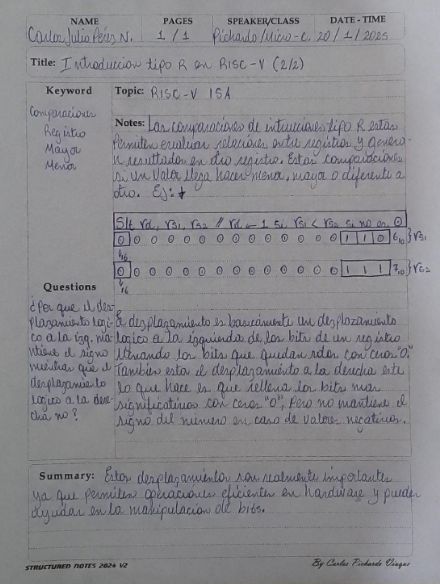 NAME PAGES SPEAKER/CLASS DATE - TIME
Carlos Julio Pérez N. 1 / 1 Pichardo/Micro-C. 20 / 1 / 2025
Title: Introduccion tipo R en RISC-V (2/2)
Keyword
Comparaciones
Registro
Mayor
Menor
Topic: RISC-V ISA
Notes: Las comparaciones de intrucciones tipo R estas
permiten evaluar relaciones entre registros y genera-
n resultados en otro registro. Estas comparaciones
si un valor llega hacer menor, mayor o diferente a
otro. Ej:
Slt rd, rs1, rs2 // rd ← 1 si rs1 < rs2 si no es 0
0 0 0 0 0 0 0 0 0 0 0 0 0 1 1 0 6
0 0 0 0 0 0 0 0 0 0 0 0 0 1 1 1 7 rs2
Questions
¿Por que el des-
plazamiento logi-
co a la izq. man-
tiene el signo
mientras que el
desplazamiento
logico a la dere-
cha no?
El desplazamiento es basicamente un desplazamiento
logico a la izquierda de los bits de un registro
llenando los bits que quedan solos con ceros "0."
Tambien esta el desplazamiento a la derecha este
lo que hace es que rellena los bits mas
significativos con ceros "0", Pero no mantiene el
signo del numero en caso de valores negativos.
Summary: Estos desplazamientos son realmente importantes
ya que permiten operaciones eficientes en hardware y pueden
ayudar en la manipulacion de bits.
STRUCTURED NOTES 2024 V2 By Carlos Pichardo Viuque